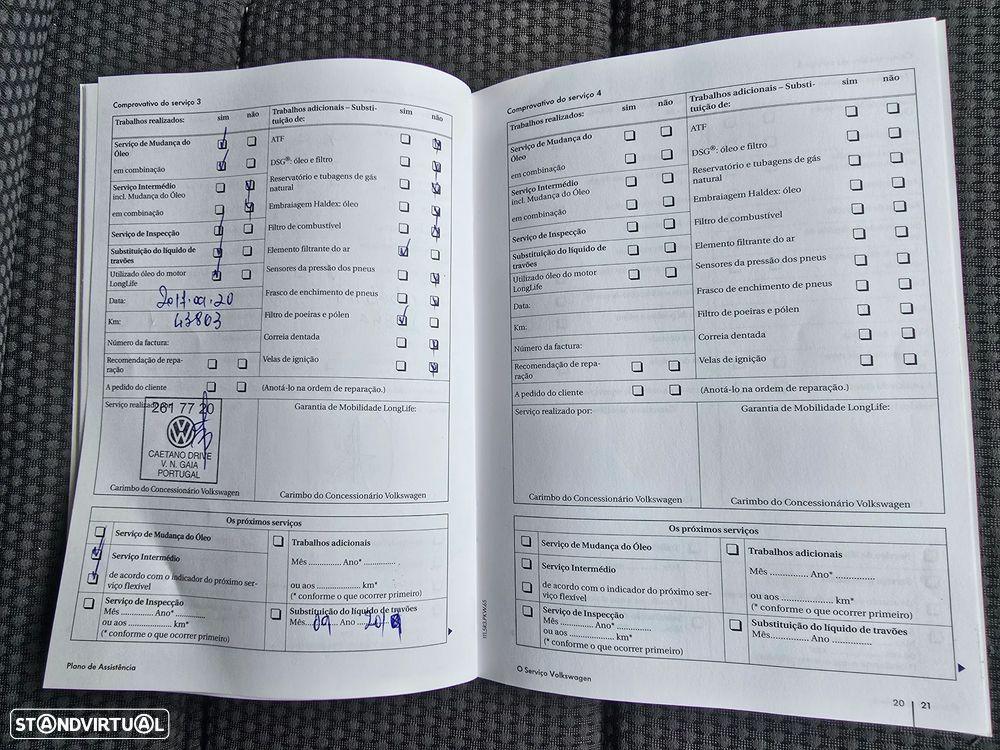 Comprovativo do serviço 3
Trabalhos realizados: sim não
Serviço de Mudança do
Óleo
em combinação
Serviço Intermédio
incl. Mudança do Óleo
em combinação
Serviço de Inspecção
Substituição do líquido de
travões
Utilizado óleo do motor
LongLife
Data: 2017.09.20
Km: 43803
Número da factura:
Recomendação de repa-
ração
A pedido do cliente
Trabalhos adicionais – Substi-
tuição de: sim não
ATF
DSG®: óleo e filtro
Reservatório e tubagens de gás
natural
Embraiagem Haldex: óleo
Filtro de combustível
Elemento filtrante do ar
Sensores da pressão dos pneus
Frasco de enchimento de pneus
Filtro de poeiras e pólen
Correia dentada
Velas de ignição
(Anotá-lo na ordem de reparação.)
Serviço realizado
261 77 20
CAETANO DRIVE
V. N. GAIA
PORTUGAL
Carimbo do Concessionário Volkswagen
Garantia de Mobilidade LongLife:
Carimbo do Concessionário Volkswagen
Os próximos serviços
Serviço de Mudança do Óleo
Serviço Intermédio
de acordo com o indicador do próximo ser-
viço flexível
Serviço de Inspecção
Mês ............ Ano* ............
ou aos .................... km*
(* conforme o que ocorrer primeiro)
Trabalhos adicionais
Mês ............. Ano* .............
ou aos .................... km*
(* conforme o que ocorrer primeiro)
Substituição do líquido de travões
Mês 09 Ano
111.5R3.PKW.65
Plano de Assistência
Comprovativo do serviço 4
Trabalhos realizados: sim não
Serviço de Mudança do
Óleo
em combinação
Serviço Intermédio
incl. Mudança do Óleo
em combinação
Serviço de Inspecção
Substituição do líquido de
travões
Utilizado óleo do motor
LongLife
Data:
Km:
Número da factura:
Recomendação de repa-
ração
A pedido do cliente
Trabalhos adicionais – Substi-
tuição de: sim não
ATF
DSG®: óleo e filtro
Reservatório e tubagens de gás
natural
Embraiagem Haldex: óleo
Filtro de combustível
Elemento filtrante do ar
Sensores da pressão dos pneus
Frasco de enchimento de pneus
Filtro de poeiras e pólen
Correia dentada
Velas de ignição
(Anotá-lo na ordem de reparação.)
Serviço realizado por:
Carimbo do Concessionário Volkswagen
Garantia de Mobilidade LongLife:
Carimbo do Concessionário Volkswagen
Os próximos serviços
Serviço de Mudança do Óleo
Serviço Intermédio
de acordo com o indicador do próximo ser-
viço flexível
Serviço de Inspecção
Mês ............ Ano* ............
ou aos .................... km*
(* conforme o que ocorrer primeiro)
Trabalhos adicionais
Mês .............. Ano* ..............
ou aos .................... km*
(* conforme o que ocorrer primeiro)
Substituição do líquido de travões
Mês............. Ano ..............
O Serviço Volkswagen
20 21
STANDVIRTUAL